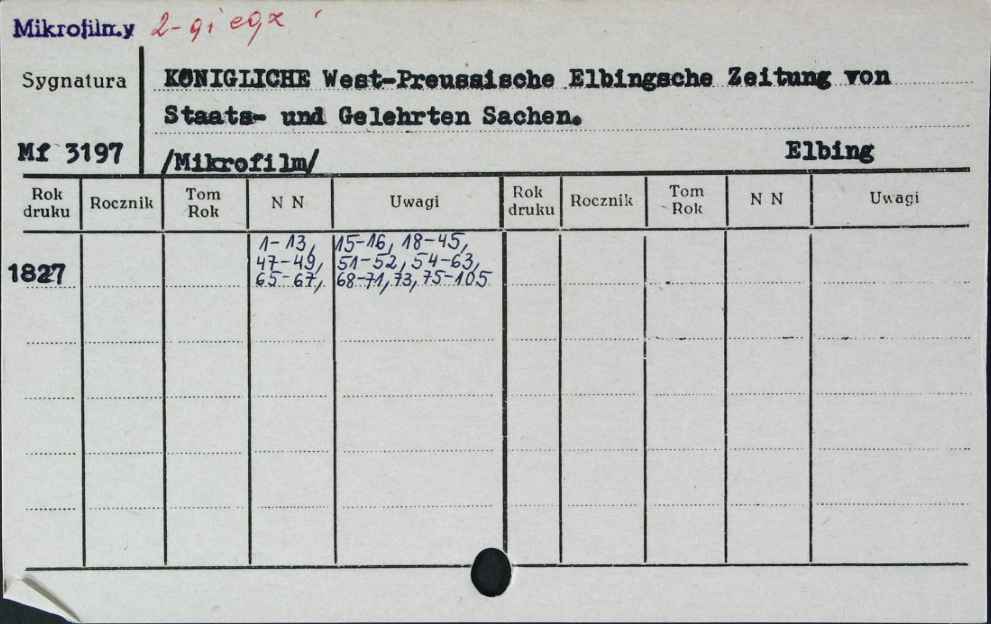 Mikrofilmy 2-gi egz
Sygnatura KÖNIGLICHE West-Preussische Elbingsche Zeitung von
Staats- und Gelehrten Sachen.
Mf 3197 /Mikrofilm/ Elbing
Rok druku Rocznik Tom Rok N N Uwagi Rok druku Rocznik Tom Rok N N Uwagi
1-13, 15-16, 18-45,
1827 47-49, 51-52, 54-63,
65-67, 68-71, 73, 75-105